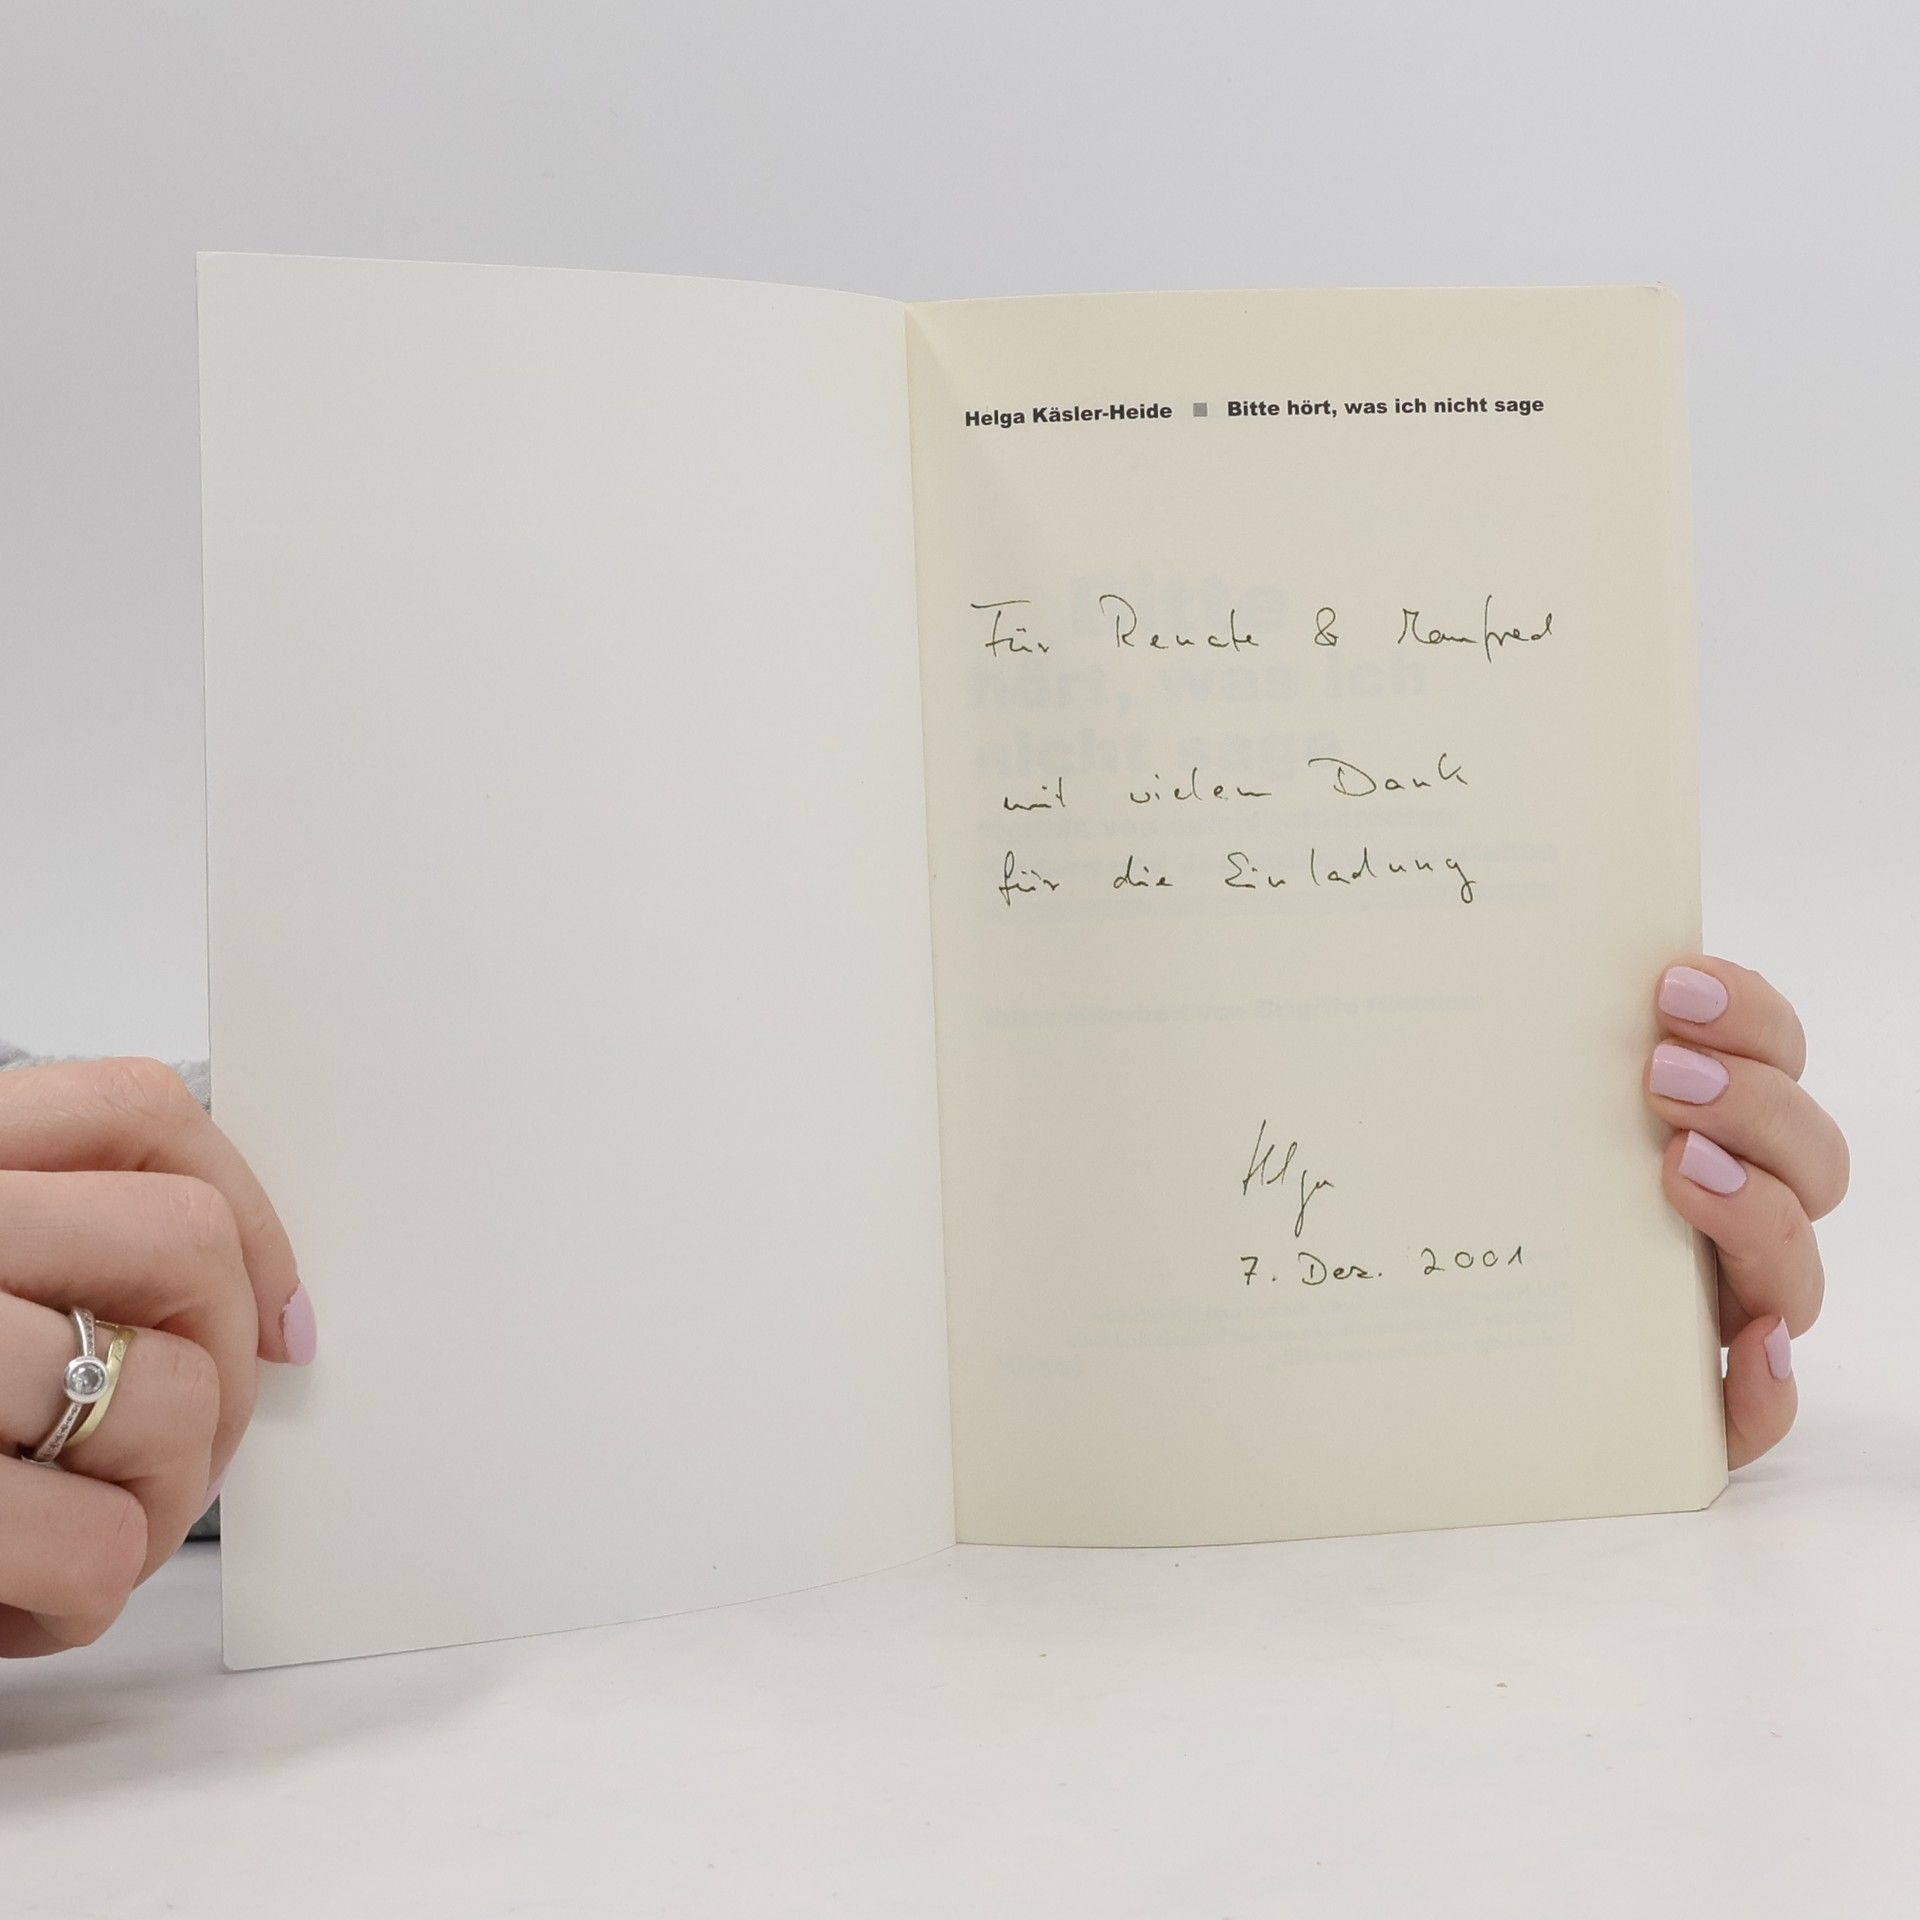 Helga Käsler-Heide ■ Bitte hört, was ich nicht sage
Für Renate & Manfred
mit vielem Dank
für die Einladung
Helga
7. Dez. 2001
Bitte
hört, was ich
nicht sage